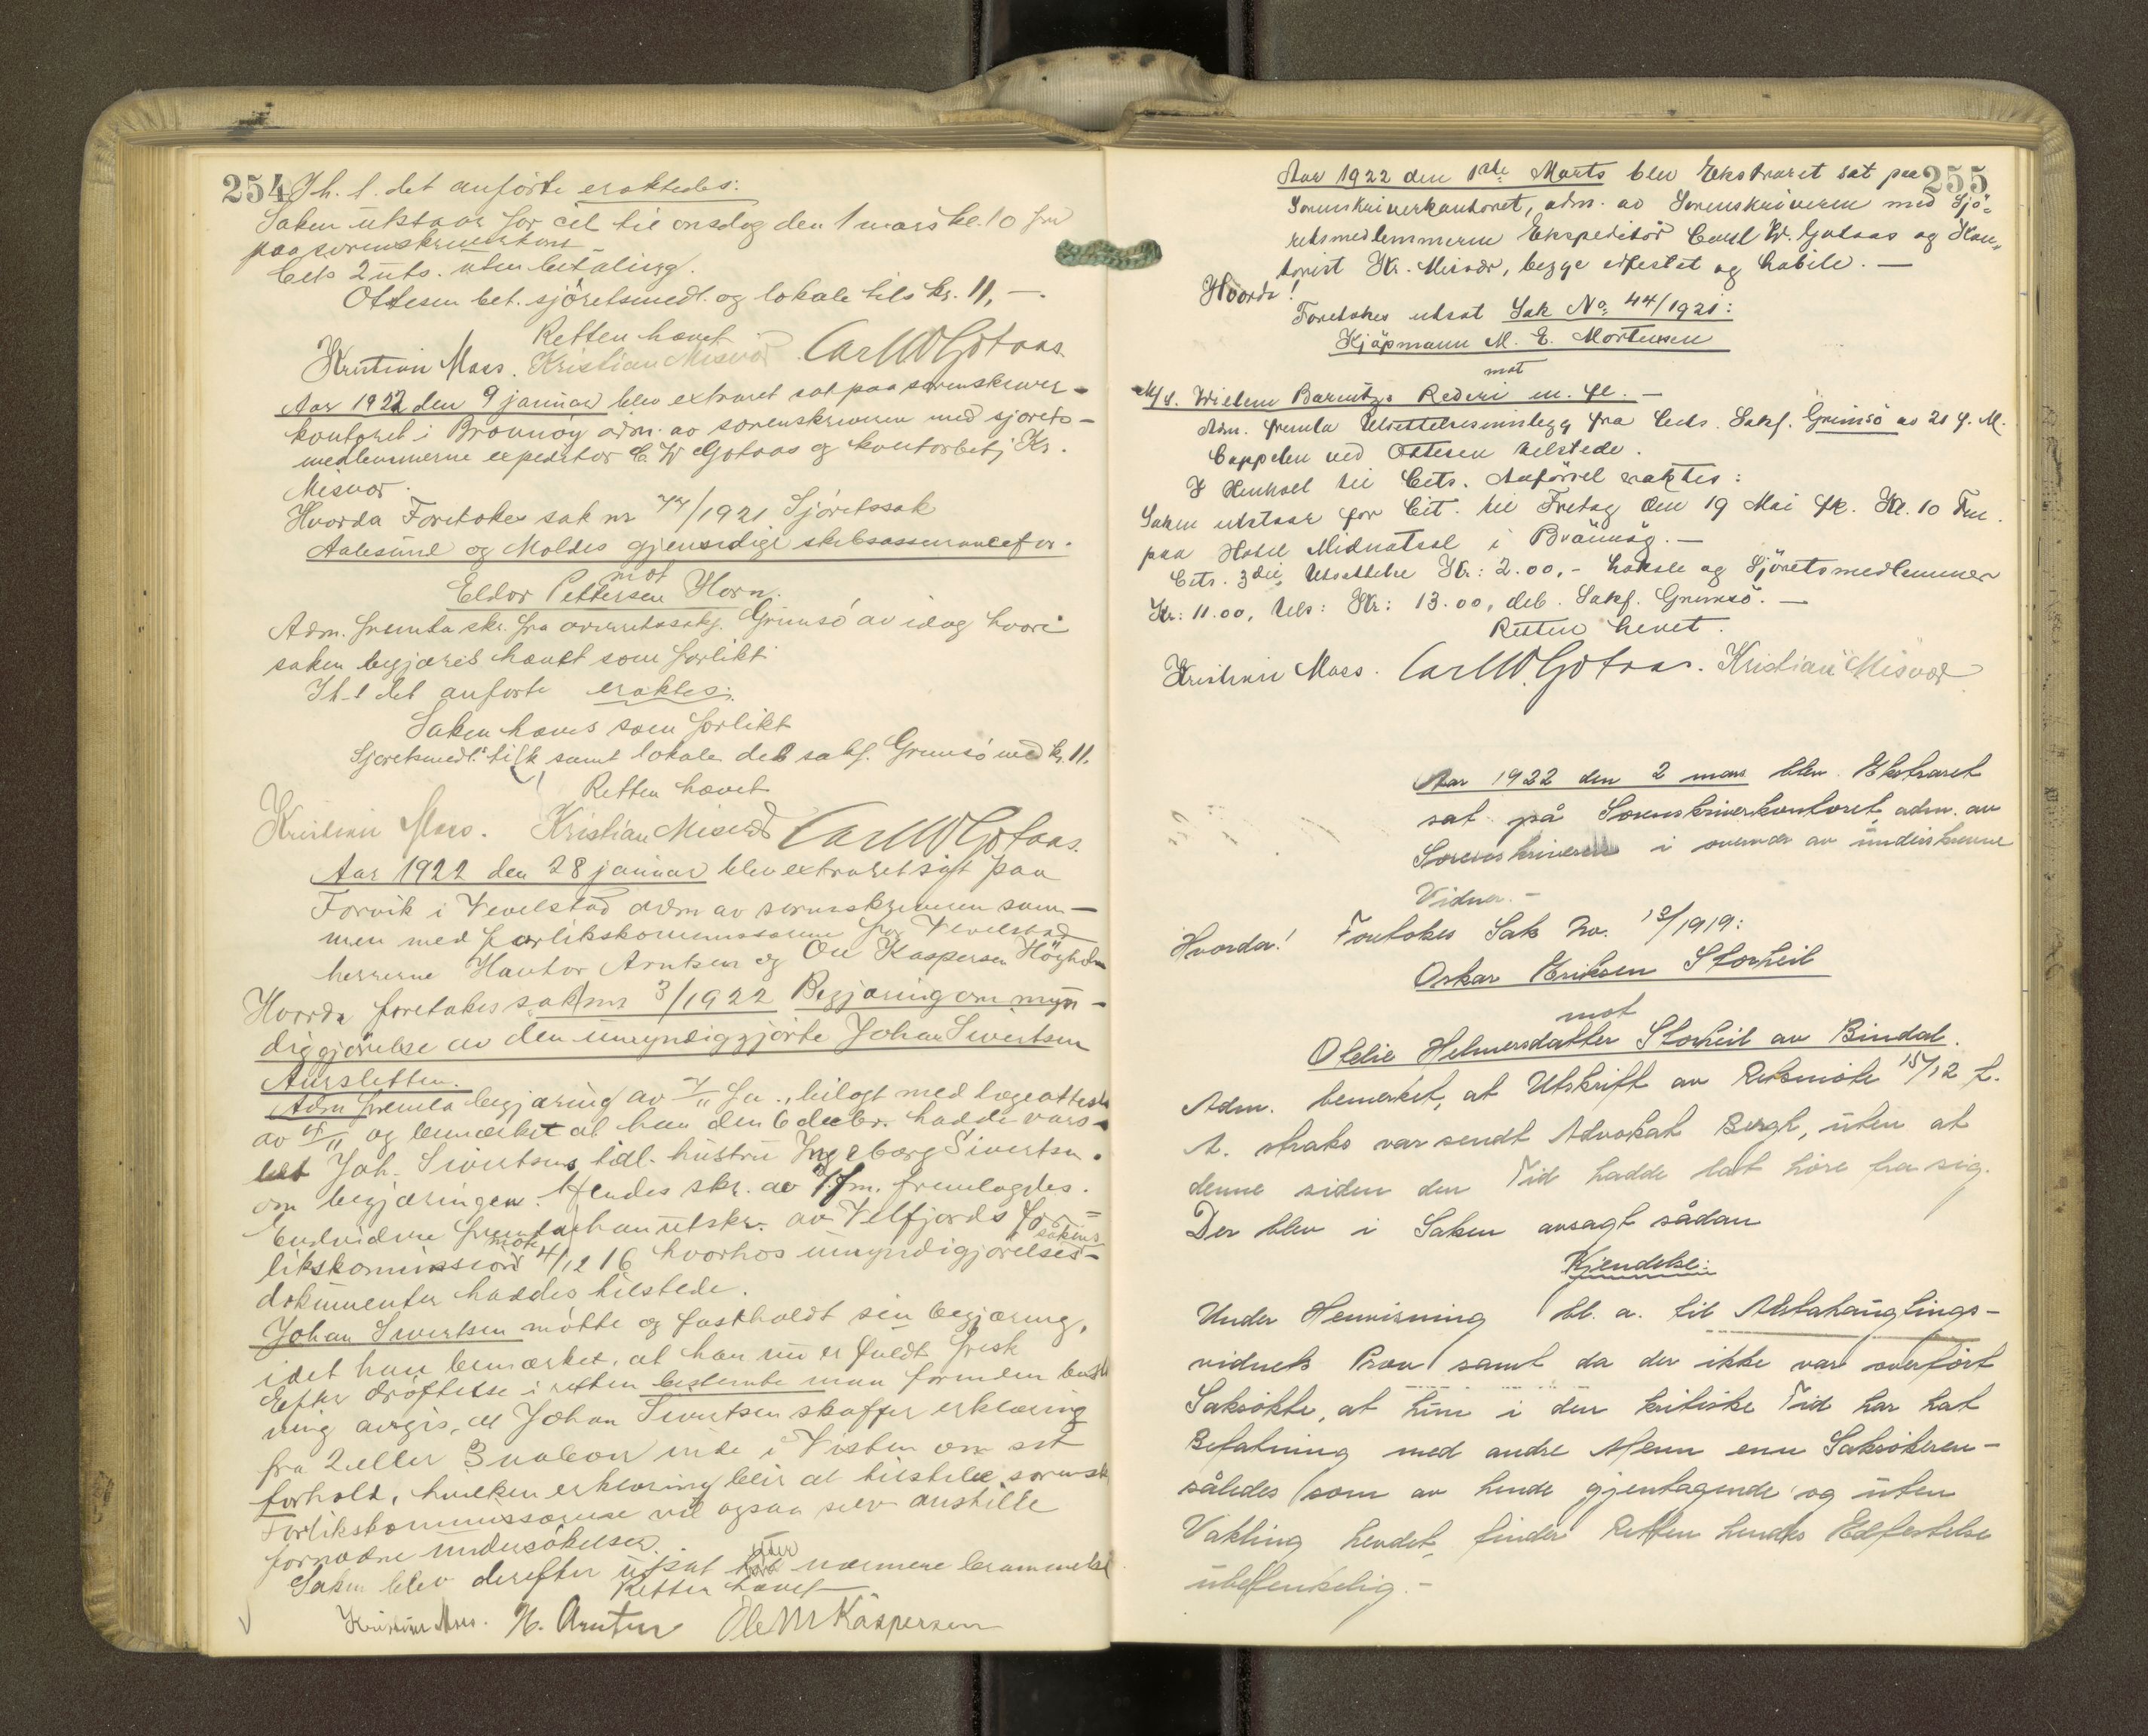 254
Th. t. det anförte eraktedes:
Saken utstaar for cit til onsdag den 1 mars kl. 10 fm
paa sorenskriverkont
Cits 2 uts. uten betaling.
Ottesen bet. sjöretsmedl. og lokale tils kr. 11,—.
Retten hævet
Kristian Maas. Kristian Misvær Carl W Gotaas.
Aar 1922 den 9 januar blev extraret sat paa sorenskriver-
kontoret i Brönnöy adm. av sorenskriveren med sjörets-
medlemmerne expeditör C W Gotaas og kontorbetj Kr.
Misvær.
Hvorda Foretokes sak nr 44/1921 Sjöretssak
Aalesund og Moldes gjensidige skibsassurancefor.
mot
Eldor Pettersen Horn.
Adm. fremla skr. fra overretssakf. Grimsö av idag hvori
saken begjæres hævet som forlikt
Th. t det anförte eraktes:
Saken hæves som forlikt
Sjöretsmedl. tilk samt lokale deb sakf. Grimsö med kr. 11.
Retten hævet
Kristian Maas. Kristian Misvær Carl W Gotaas.
Aar 1922 den 28 januar blev extraret sat paa
Forvik i Vevelstad adm av sorenskriveren sam-
men med forlikskommissærene for Vevelstad
herrerne Hantor Arntsen og Ole Kaspersen Höyholm
Hvorda foretokes sak nr 3/1922 Begjæring om myn-
diggjörelse av den umyndiggjorte Johan Sivertsen
Aursletten.
Adm fremla begjæring av /11 f.a., bilagt med lægeattest
av /11 og bemærket at han den 6 decbr. hadde vars-
let Joh. Sivertsens tidl. hustru Ingeborg Sivertsen
om begjæringen. Hendes skr. av f.m. fremlagdes.
Endvidere fremla han utskr. av Velfjords for-
likskommission möte 4/12 16 hvorhos umyndigjörelses- sakens
dokumenter haddes tilstede.
Johan Sivertsen mötte og fastholdt sin begjæring,
idet han bemærket, at han nu er fuldt frisk
Efter dröftelse i retten bestemte man förinden
ning avgis, at Johan Sivertsen skaffer erklæring
fra 2 eller 3 naboer inde i Visten om sit
forhold, hvilken erklæring blir at tilstille sorensk
Forlikskommissærene vil ogsaa selv anstille
fornödne undersökelser.
Saken blev derefter utsat uten nærmere berammelse
Retten hævet
Kristian Maas. H. Arntsen Ole M Kaspersen
255
Aar 1922 den 1ste Marts blev Ekstraret sat paa
Sorenskriverkontoret, adm. av Sorenskriveren med Sjö-
retsmedlemmerne Ekspeditör Carl W. Gotaas og Kon-
torist Kr. Misvær, begge edfestet og habile. —
Hvorda!
Foretokes utsat Sak No. 44/1921:
Kjöpmann M. E. Mortensen
mot
M/S. Wilhem Barentz's Rederi m. fl. —
Adm. fremla Utsættelsesinnlegg fra Cits. Sakf. Grimsö av 21 f. M.
Cappelen ved Ottesen tilstede.
I Henhold til Cits. Anförsel eraktes:
Saken utstaar for Cit. til Fredag den 19 Mai fk. Kl. 10 Fm.
paa Hotel Midnatsol i Brönnöy. —
Cits. 3die Utsættelse Kr: 2.00,- Lokale og Sjöretsmedlemmer
Kr: 11.00, tils: Kr: 13.00, deb. Sakf. Grimsö. —
Retten hevet.
Kristian Maas. Carl W. Gotaas. Kristian Misvær
Aar 1922 den 2 mars blev Ekstraret
sat på Sorenskriverkontoret, adm. av
Sorenskriveren i overvær av underskrevne
Vidner. —
Hvorda! Foretokes Sak No. 13/1919:
Oskar Eriksen Storheil
mot
Otelie Helmersdatter Storheil av Bindal.
Adm. bemerket, at Utskrift av Retsmöte 15/12 f.
A. straks var sendt Advokat Bergh, uten at
denne siden den Tid hadde latt höre fra sig.
Der blev i Saken avsagt sådan
Kjendelse:
Under Henvisning bl. a. til Avstahænglings-
vidnets Prov samt da der ikke var overfört
Saksökte, at hun i den kritiske Tid har hat
Befatning med andre Menn enn Saksökeren -
således som av hende gjentagende og uten
Vakling hendet, finder Retten hendes Edfestelse
ubetenkelig. —